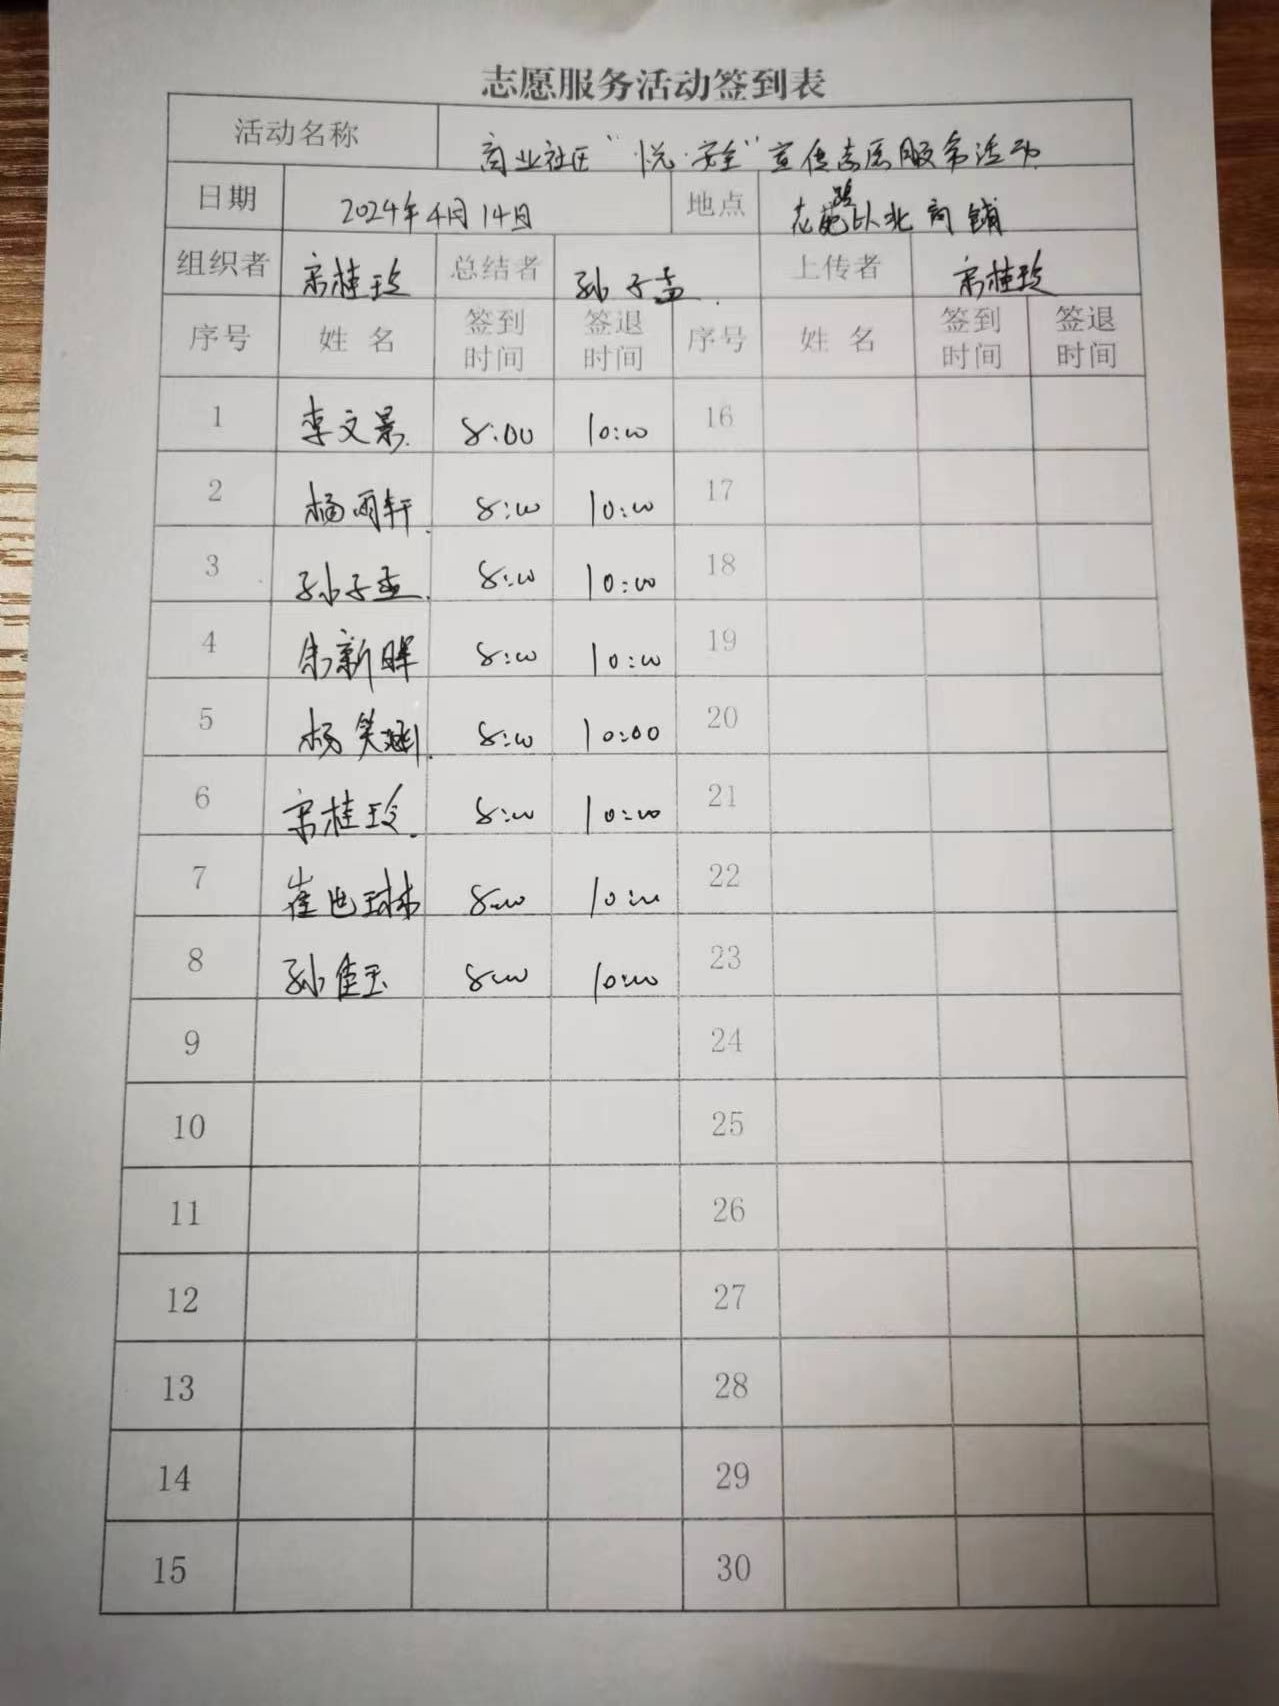 志愿服务活动签到表
活动名称 商业社区“悦·安全”宣传志愿服务活动
日期 2024年4月14日 地点 路以北商铺
组织者 宋桂玲 总结者 孙子孟 上传者 宋桂玲
序号 姓名 签到时间 签退时间 序号 姓名 签到时间 签退时间
1 李文景 8:00 10:00 16
2 杨雨轩 8:00 10:00 17
3 孙子孟 8:00 10:00 18
4 朱新晖 8:00 10:00 19
5 杨笑涵 8:00 10:00 20
6 宋桂玲 8:00 10:00 21
7 崔 琳 8:00 10:00 22
8 孙佳玉 8:00 10:00 23
9 24
10 25
11 26
12 27
13 28
14 29
15 30